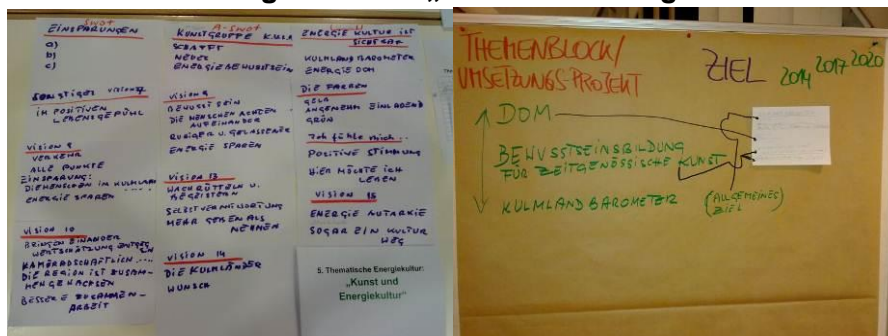 SWOT
EINSPARUNGEN
a)
b)
c)
SONSTIGES VISION
IM POSITIVEN
LEBENSGEFÜHL
VISION 8
VERKEHR
ALLE PUNKTE
EINSPARUNG:
DIE MENSCHEN IM KULMLAND
ENERGIE SPAREN
VISION 10
BRINGEN EINANDER
WERTSCHÄTZUNG
KAMERADSCHAFTLICH....
DIE REGION IST ZUSAM-
MENGEWACHSEN
BESSERE ZUSAMMEN-
ARBEIT
A-SWOT
KUNSTGRUPPE KULM
SCHAFFT
NEUES
ENERGIEBEWUSSTSEIN
VISION 9
BEWUSST SEIN
DIE MENSCHEN ACHTEN
AUFEINANDER
RUHIGER U. GELASSENER
ENERGIE SPAREN
VISION 13
WACHRÜTTELN U.
BEGEISTERN
SELBSTVERANTWORTUNG
MEHR GEBEN ALS
NEHMEN
VISION 14
DIE KULMLÄNDER
WUNSCH
ENERGIE KULTUR IST
SICHTBAR
KULMLANDBAROMETER
ENERGIE DOM
DIE FARBEN
GELB
ANGENEHM EINLADEND
GRÜN
Ich fühle mich...
POSITIVE STIMMUNG
HIER MÖCHTE ICH
LEBEN
VISION 15
ENERGIE AUTARKIE
SOGAR EIN KULTUR
WEG
5. Thematische Energiekultur:
„Kunst und
Energiekultur"
THEMENBLOCK/
UMSETZUNGSPROJEKT
ZIEL
2014 2017 2020
DOM
BEWUSSTSEINSBILDUNG
FÜR ZEITGENÖSSISCHE KUNST
KULMLANDBAROMETER
(ALLGEMEINES
ZIEL)